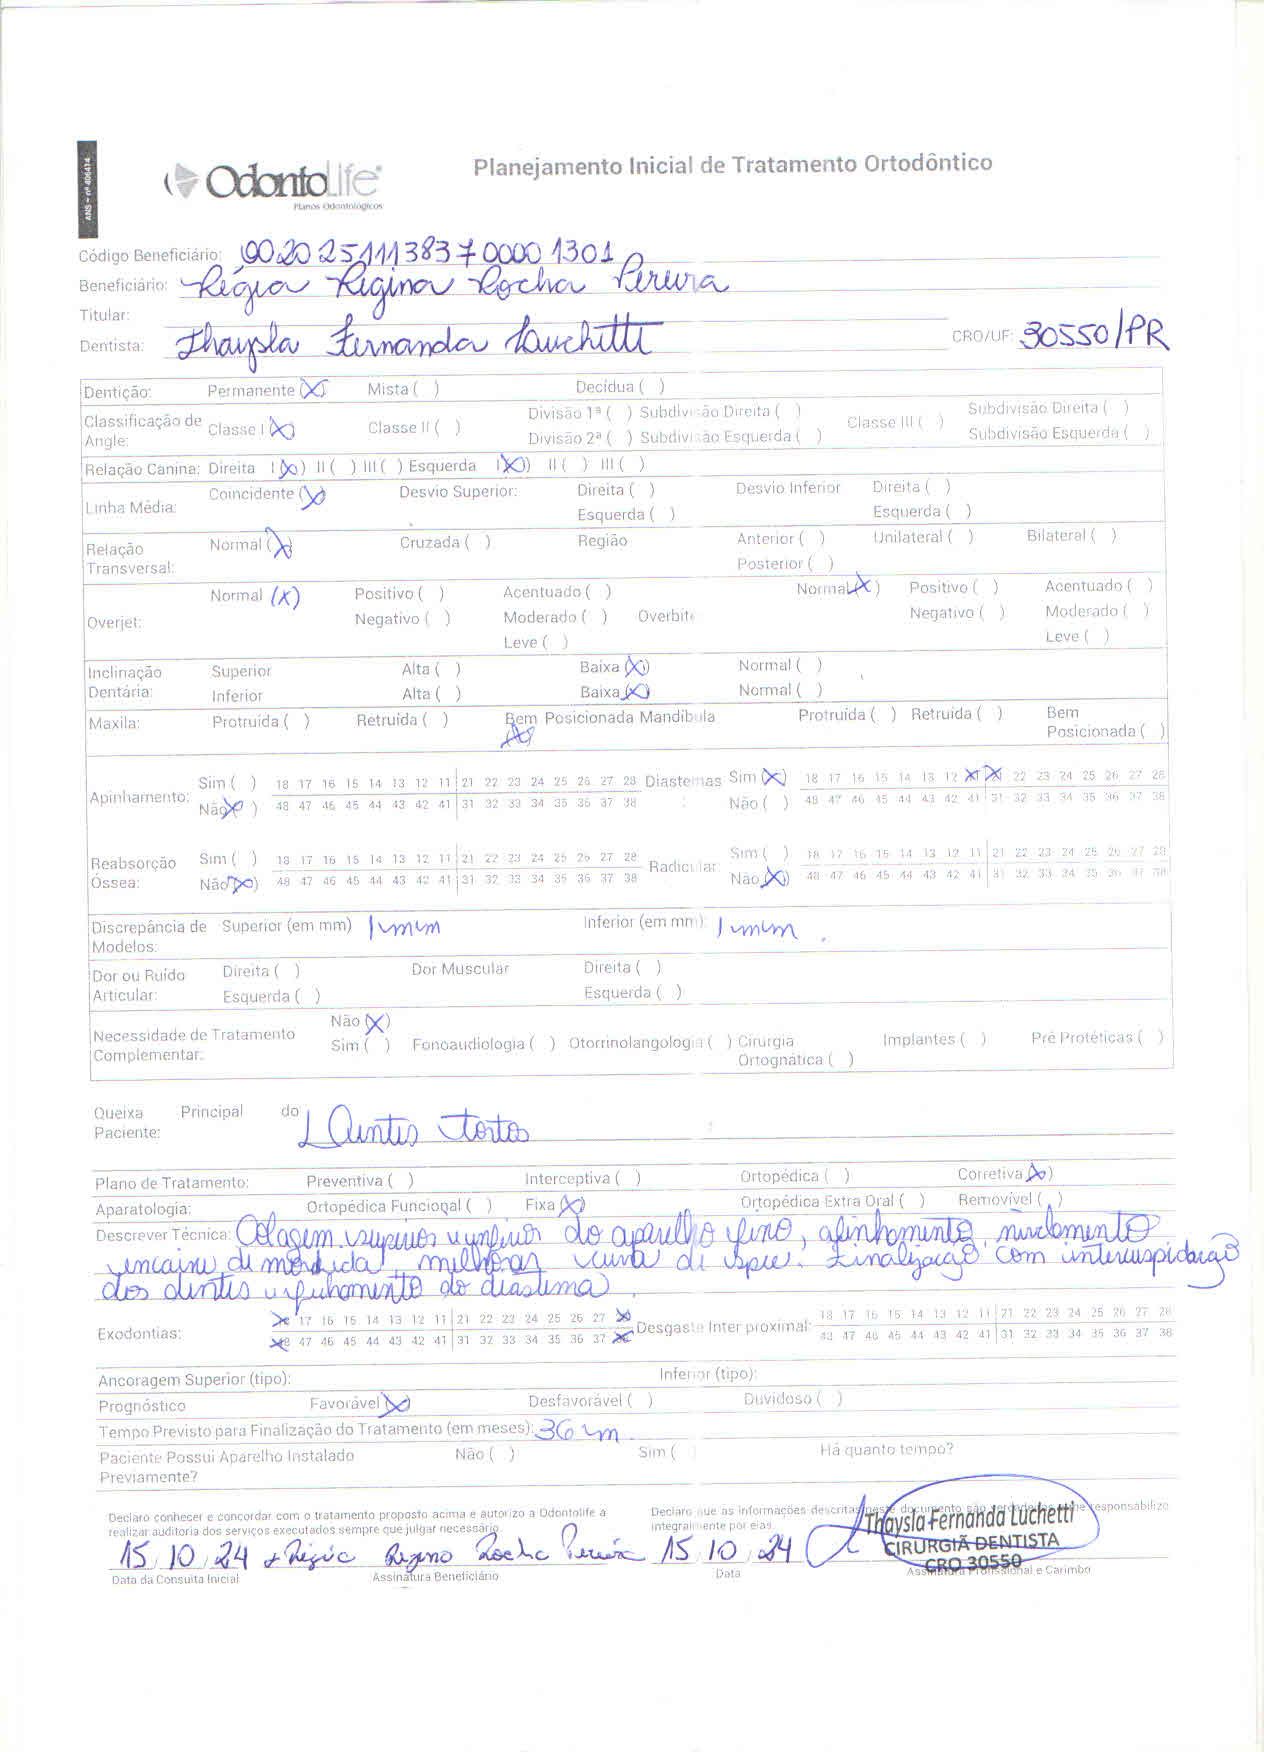 ANS - nº 406414
OdontoLife
Planos Odontológicos
Planejamento Inicial de Tratamento Ortodôntico
Código Beneficiário: 002025111383700001301
Beneficiário: Régia Regina Rocha Pereira
Titular:
Dentista: Thaysla Fernanda Luchetti CRO/UF: 30550/PR
Dentição: Permanente (X) Mista ( ) Decídua ( )
Classificação de Angle: Classe I (X) Classe II ( ) Divisão 1ª ( ) Subdivisão Direita ( ) Classe III ( ) Subdivisão Direita ( )
Divisão 2ª ( ) Subdivisão Esquerda ( ) Subdivisão Esquerda ( )
Relação Canina: Direita I (X) II ( ) III ( ) Esquerda I (X) II ( ) III ( )
Linha Média: Coincidente (X) Desvio Superior: Direita ( ) Desvio Inferior Direita ( )
Esquerda ( ) Esquerda ( )
Relação Transversal: Normal (X) Cruzada ( ) Região Anterior ( ) Unilateral ( ) Bilateral ( )
Posterior ( )
Overjet: Normal (X) Positivo ( ) Acentuado ( ) Overbite Normal (X) Positivo ( ) Acentuado ( )
Negativo ( ) Moderado ( ) Negativo ( ) Moderado ( )
Leve ( ) Leve ( )
Inclinação Dentária: Superior Alta ( ) Baixa (X) Normal ( )
Inferior Alta ( ) Baixa (X) Normal ( )
Maxila: Protruida ( ) Retruída ( ) Bem Posicionada (X) Mandíbula Protruída ( ) Retruída ( ) Bem Posicionada ( )
Apinhamento: Sim ( ) 18 17 16 15 14 13 12 11 21 22 23 24 25 26 27 28 Diastemas Sim (X) 18 17 16 15 14 13 12 X X 22 23 24 25 26 27 28
Não (X) 48 47 46 45 44 43 42 41 31 32 33 34 35 36 37 38 : Não ( ) 48 47 46 45 44 43 42 41 31 32 33 34 35 36 37 38
Reabsorção Óssea: Sim ( ) 18 17 16 15 14 13 12 11 21 22 23 24 25 26 27 28 Radicular: Sim ( ) 18 17 16 15 14 13 12 11 21 22 23 24 25 26 27 28
Não (X) 48 47 46 45 44 43 42 41 31 32 33 34 35 36 37 38 Não (X) 48 47 46 45 44 43 42 41 31 32 33 34 35 36 37 38
Discrepância de Modelos: Superior (em mm) 1 mm Inferior (em mm): 1 mm
Dor ou Ruído Articular: Direita ( ) Dor Muscular Direita ( )
Esquerda ( ) Esquerda ( )
Necessidade de Tratamento Complementar: Não (X)
Sim ( ) Fonoaudiologia ( ) Otorrinolangologia ( ) Cirurgia Ortognática ( ) Implantes ( ) Pré Protéticas ( )
Queixa Principal do Paciente: Dentes tortos
Plano de Tratamento: Preventiva ( ) Interceptiva ( ) Ortopédica ( ) Corretiva (X)
Aparatologia: Ortopédica Funcional ( ) Fixa (X) Ortopédica Extra Oral ( ) Removível ( )
Descrever Técnica: Colagem superior e inferior do aparelho fixo, alinhamento, nivelamento
encaixe de mordida, melhorar curva de spee. Finalização com intercuspidação
dos dentes e fechamento do diastema.
Exodontias: X 17 16 15 14 13 12 11 21 22 23 24 25 26 27 X Desgaste Inter proximal: 18 17 16 15 14 13 12 11 21 22 23 24 25 26 27 28
X8 47 46 45 44 43 42 41 31 32 33 34 35 36 37 X 48 47 46 45 44 43 42 41 31 32 33 34 35 36 37 38
Ancoragem Superior (tipo): Inferior (tipo):
Prognóstico Favorável (X) Desfavorável ( ) Duvidoso ( )
Tempo Previsto para Finalização do Tratamento (em meses): 36 m
Paciente Possui Aparelho Instalado Previamente? Não ( ) Sim ( ) Há quanto tempo?
Declaro conhecer e concordar com o tratamento proposto acima e autorizo a Odontolife a
realizar auditoria dos serviços executados sempre que julgar necessário.
Declaro que as informações descritas neste documento são verdadeiras e me responsabilizo
integralmente por elas
15/10/24 x Régia Regina Rocha Pereira 15/10/24
Thaysla Fernanda Luchetti
CIRURGIÃ DENTISTA
CRO 30550
Data da Consulta Inicial Assinatura Beneficiário Data Assinatura Profissional e Carimbo